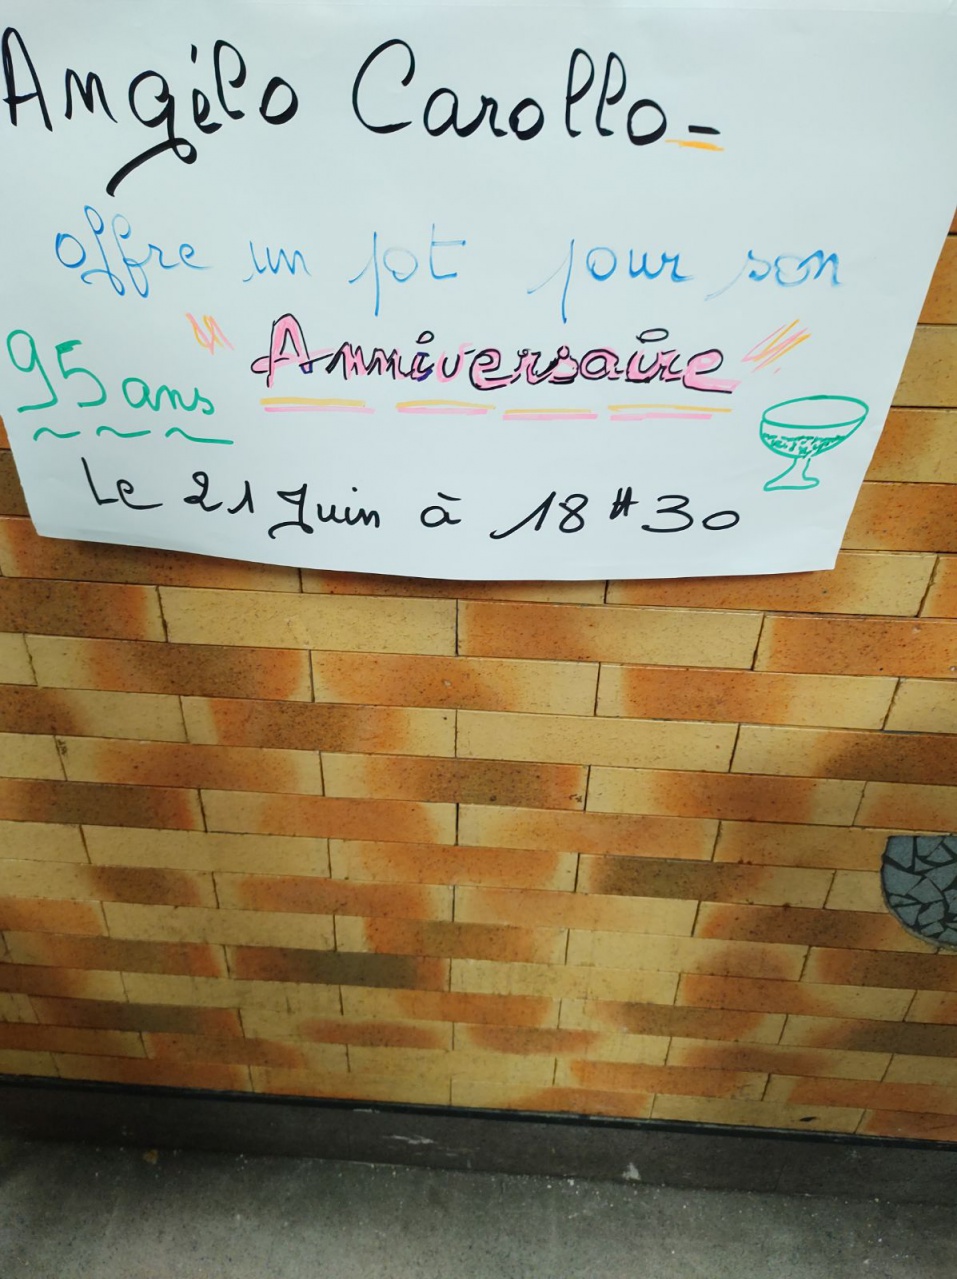 Angélo Carollo-
offre un pot pour son
95 ans " Anniversaire "
Le 21 Juin à 18H30